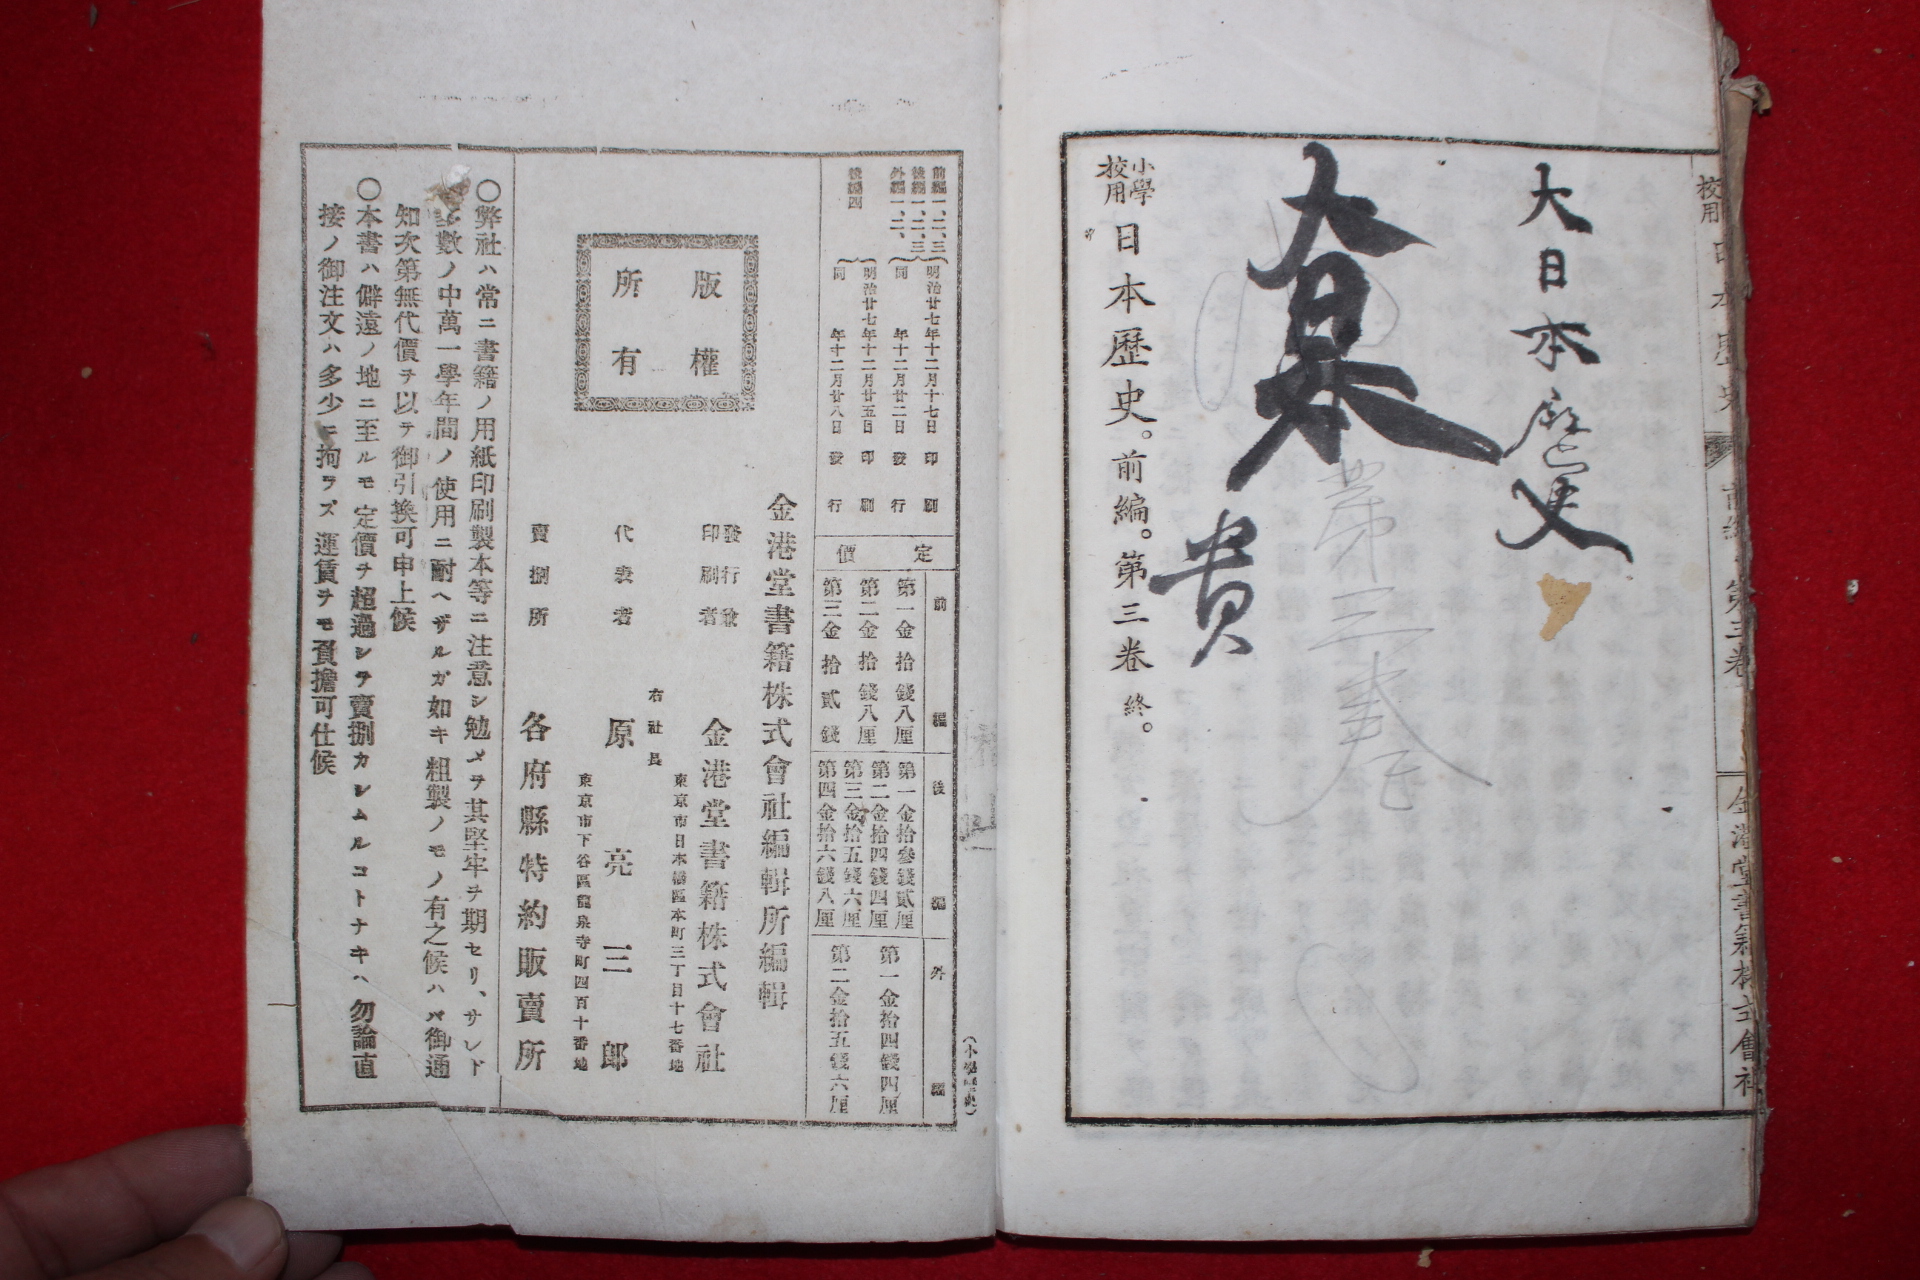 校用
日本歴史
前編
第三卷
金港堂書籍株式會社
大日本歴史
大日本
貴
第三巻
小學校用
日本歷史。前編。第三卷 終。
前編一、二、三
後編一、二、三
明治廿七年十二月十七日印刷
外編一、二、
同 年十二月廿二日發行
後編四
明治廿七年十二月廿五日印刷
同 年十二月廿八日發行
定價
前編
第一金拾錢八厘
第二金拾錢八厘
第三金拾貳錢
後編
第一金拾參錢貳厘
第二金拾四錢四厘
第三金拾五錢六厘
第四金拾六錢八厘
外編
第一金拾四錢四厘
第二金拾五錢六厘
金港堂書籍株式會社編輯所編輯
發行兼
印刷者
金港堂書籍株式會社
東京市日本橋區本町三丁目十七番地
右社長
代表者
原亮三郎
東京市下谷區龍泉寺町四百十番地
賣捌所
各府縣特約販賣所
版權
所有
○弊社ハ常ニ書籍ノ用紙印刷製本等ニ注意シ勉メテ其堅牢ヲ期セリ、サレド
多數ノ中萬一學年間ノ使用ニ耐ヘザルガ如キ粗製ノモノ有之候ハバ御通
知次第無代價ヲ以テ御引換可申上候
○本書ハ僻遠ノ地ニ至ルモ定價ヲ超過シテ賣捌カレムルコトナキハ勿論直
接ノ御注文ハ多少ニ拘ラズ運賃ヲモ負擔可仕候